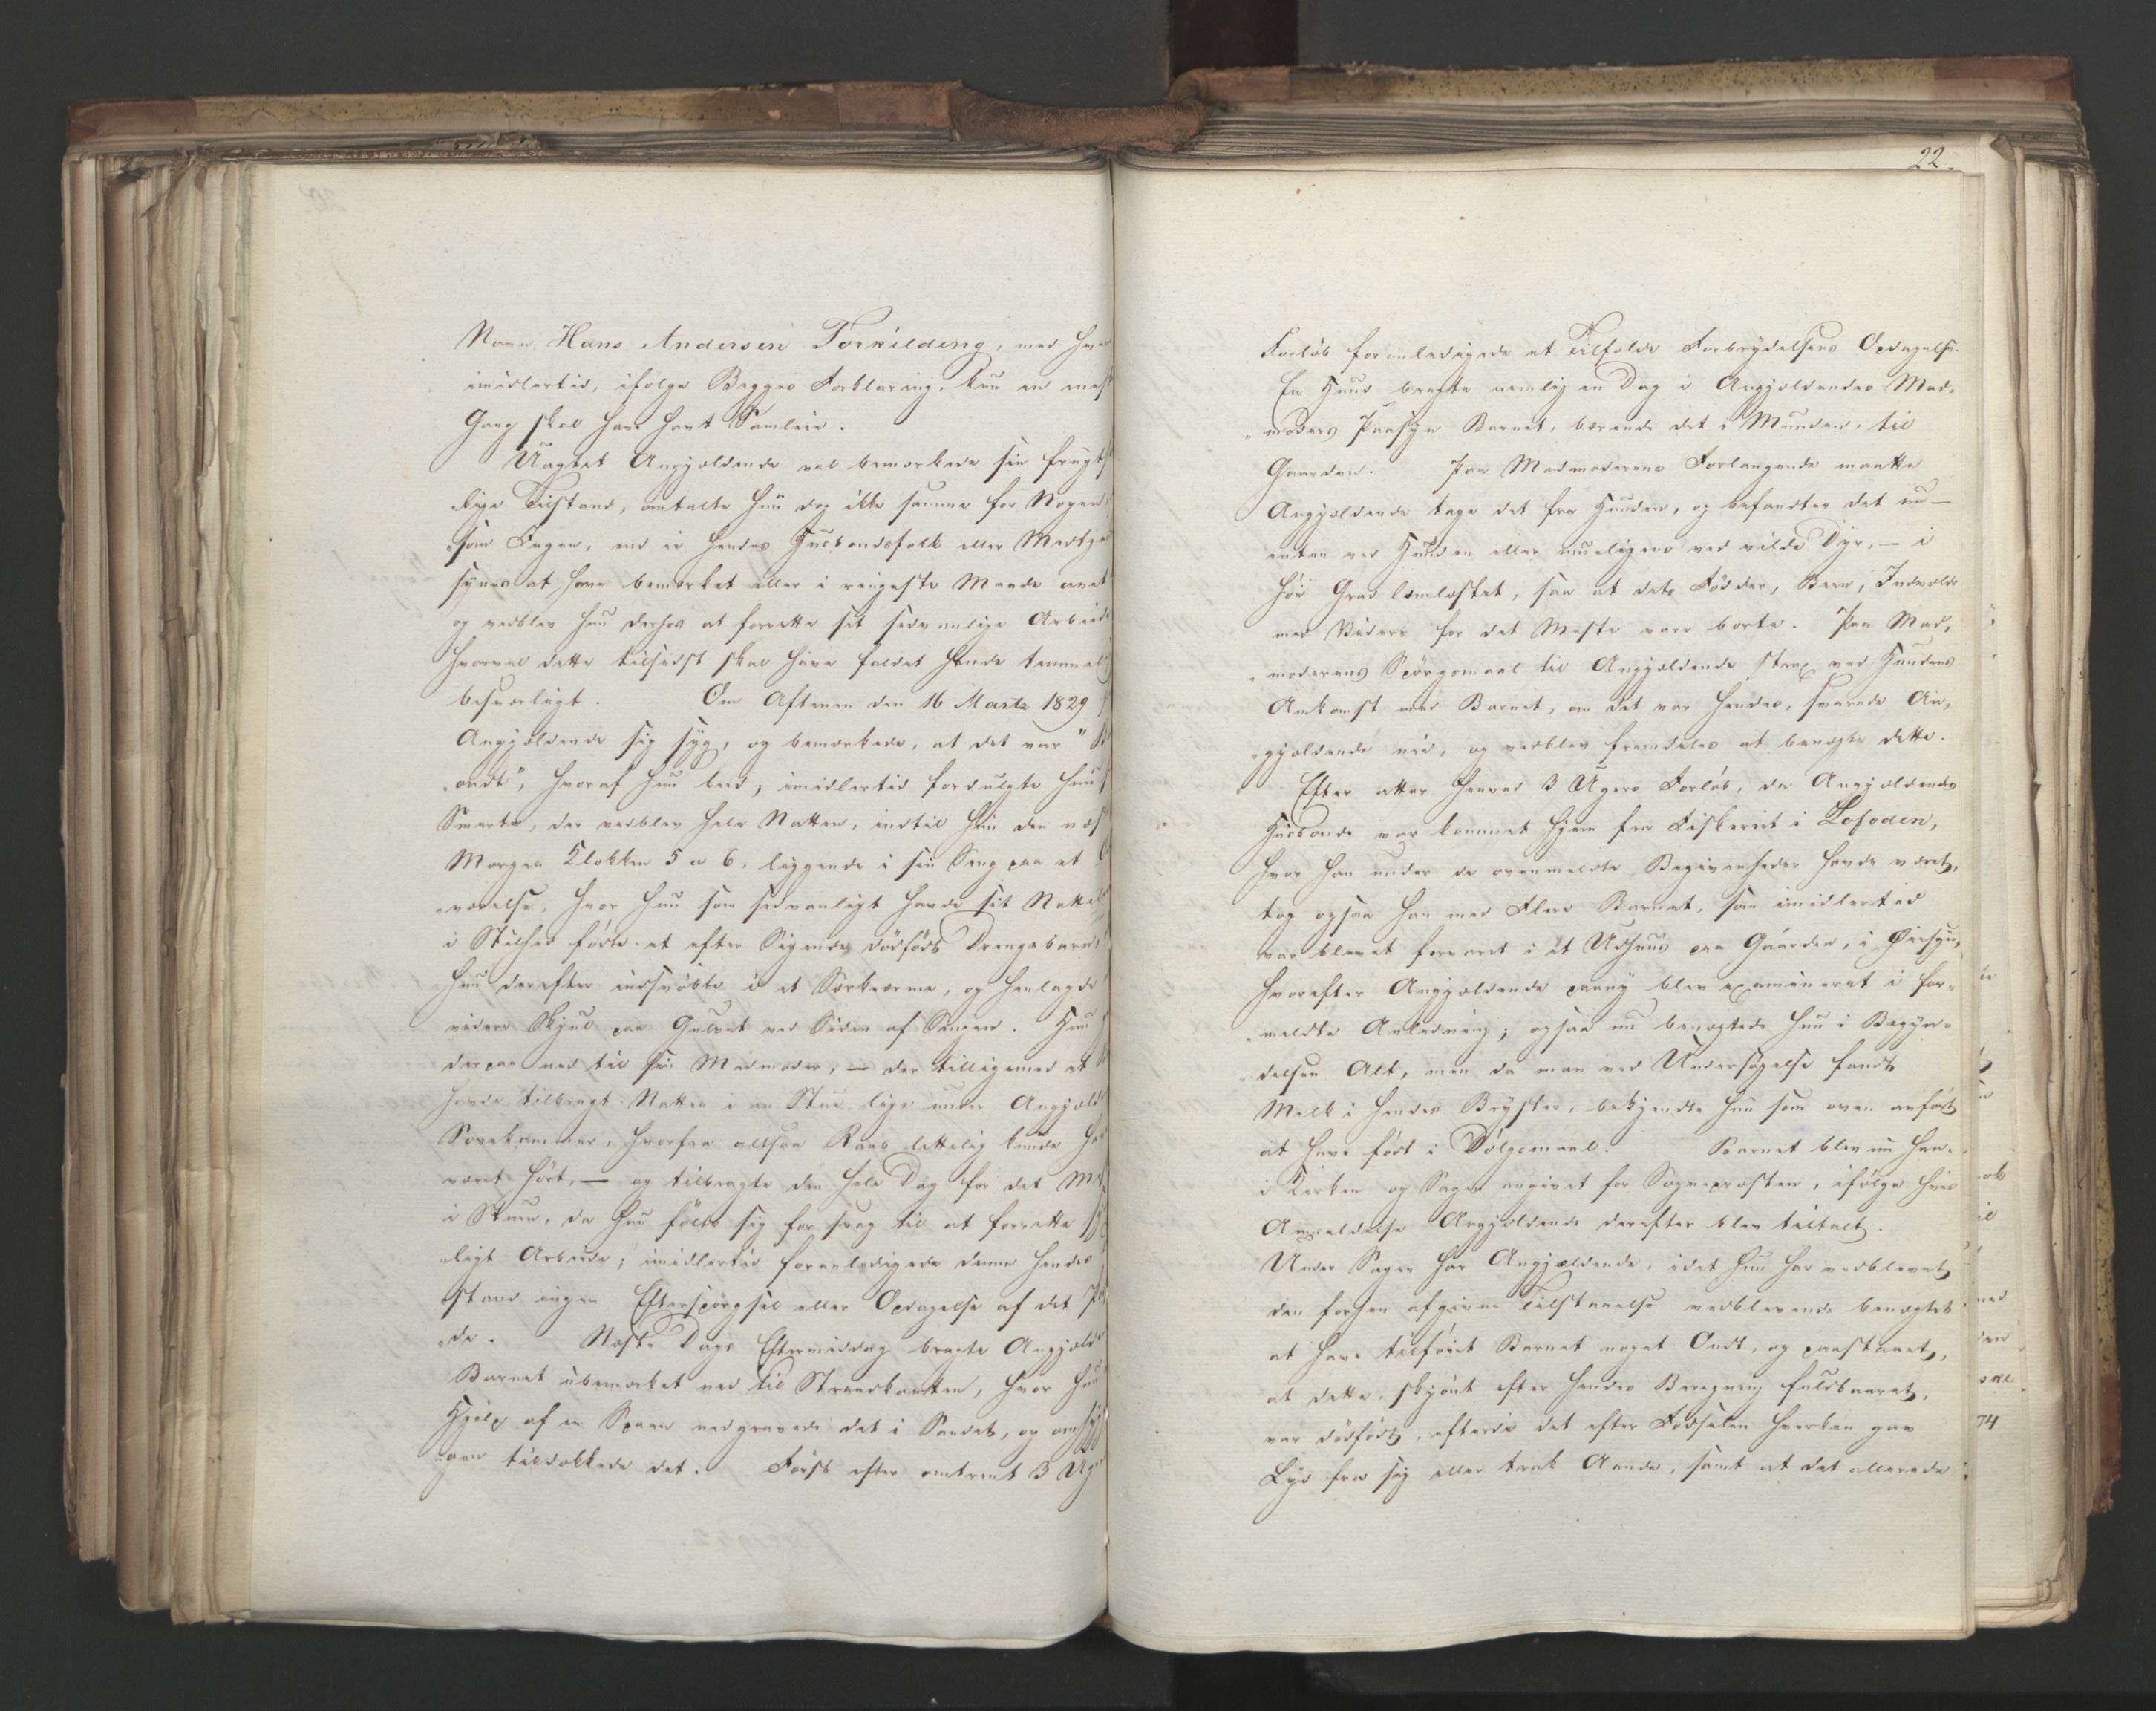 Navn Hans Andersen Torkildeng, med hvem
imidlertid, ifølge Begges Forklaring, kun en enest
Gang skal have havt Samleie.
Uagtet Angjældende vel bemærkede sin frugt
lige Tilstand, omtalte hun dog ikke samme for Nogen,
som Ingen, end ei hendes Huusbondsfolk eller Medtje
synes at have bemærket eller i ringeste Maade anet
og vedblev hun derhos at forrette sit sædvanlige Arbeide
hvorvel dette tilsidst skal have faldet hende temmel
besværligt. Om Aftenen den 16 Marts 1829
Angjældende sig syg, og bemærkede, at det var "
ondt", hvoraf hun leed, imidlertid fordulgte hun
Smerte, der vedblev hele Natten, indtil hun den næst
Morgen Klokken 5 a 6, liggende i sin Seng paa et
værelse, hvor hun som sædvanligt havde sit Natte
i Stilhed fødte et efter Sigende dødfødt Drengebarn,
hun derefter indsvøbte i et Særkeærme, og henlagde
videre Skjul paa Gulvet ved Siden af Sengen. Hun
derpaa ned til sin Madmoder, — der tilligemed et
havde tilbragt Natten i en Stue lige under Angjæld
Sovekammer, hvorfra altsaa Raab letteligt kunde ha
været hørt, — og tilbragte den hele Dag for det Mes
i Stuen, da hun følte sig for svag til at forrette
ligt Arbeide; imidlertid foranledigede denne hendes
stand ingen Efterspørgsel eller Opdagelse af det
de. Næste Dags Eftermiddag bragte Angjæld
Barnet ubemærket ned til Strandkanten, hvor hun
Hjelp af en Spaan nedgravede det i Sandet, og omhyg
gen tildækkede det. Først efter omtrent 3 Uge
22.
Forløb foranledigede et Tilfælde Forbrydelsens Opdagelse.
En Hund bragte nemlig en Dag i Angjældendes Mad-
moders Paasyn Barnet, bærende det i Munden, til
Gaarden. Paa Madmoderens Forlangende maatte
Angjældende tage det fra Hunden, og befandtes det nu —
enten ved Hunden eller mueligens ved vilde Dyr, — i
høi Grad lemlæstet, saa at dets Fødder, Been, Indvolde
med Videre for det Meste vare borte. Paa Mad-
moderens Spørgsmaal til Angjældende strax ved Hundens
Ankomst med Barnet, om det var hendes, svarede An-
gjældende nei, og vedblev fremdeles at benægte dette.
Efter atter henved 3 Ugers Forløb, da Angjældendes
Huusbonde var kommet hjem fra Fiskeriet i Lofoden,
hvor han under de ovenmeldte Begivenheder havde været,
tog ogsaa han med Flere Barnet, som imidlertid
var blevet forvaret i et Udhuus paa Gaarden, i Øiesyn,
hvorefter Angjældende paany blev examineret i for-
meldte Anledning; ogsaa nu benægtede hun i Begyn-
delsen Alt, men da man ved Undersøgelse fandt
Melk i hendes Bryster, bekjendte hun som oven anført
at have født i Dølgsmaal. Barnet blev nu hen-
i Kirken og Sagen angivet for Sognepræsten, ifølge hvis
Anmeldelse Angjældende derefter blev tiltalt.
Under Sagen har Angjældende, idet hun har vedblevet
den forhen afgivne Tilstaaelse vedblevende benægtet
at have tilføiet Barnet noget Ondt, og paastaaet,
at dette, skjønt efter hendes Beregning fuldbaaret,
var dødfødt, efterdi det efter Fødselen hverken gav
Lyd fra sig eller trak Aande, samt at det allerede
74